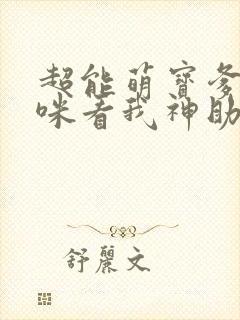 超能萌寶爹
咪看我神助
舒麗文